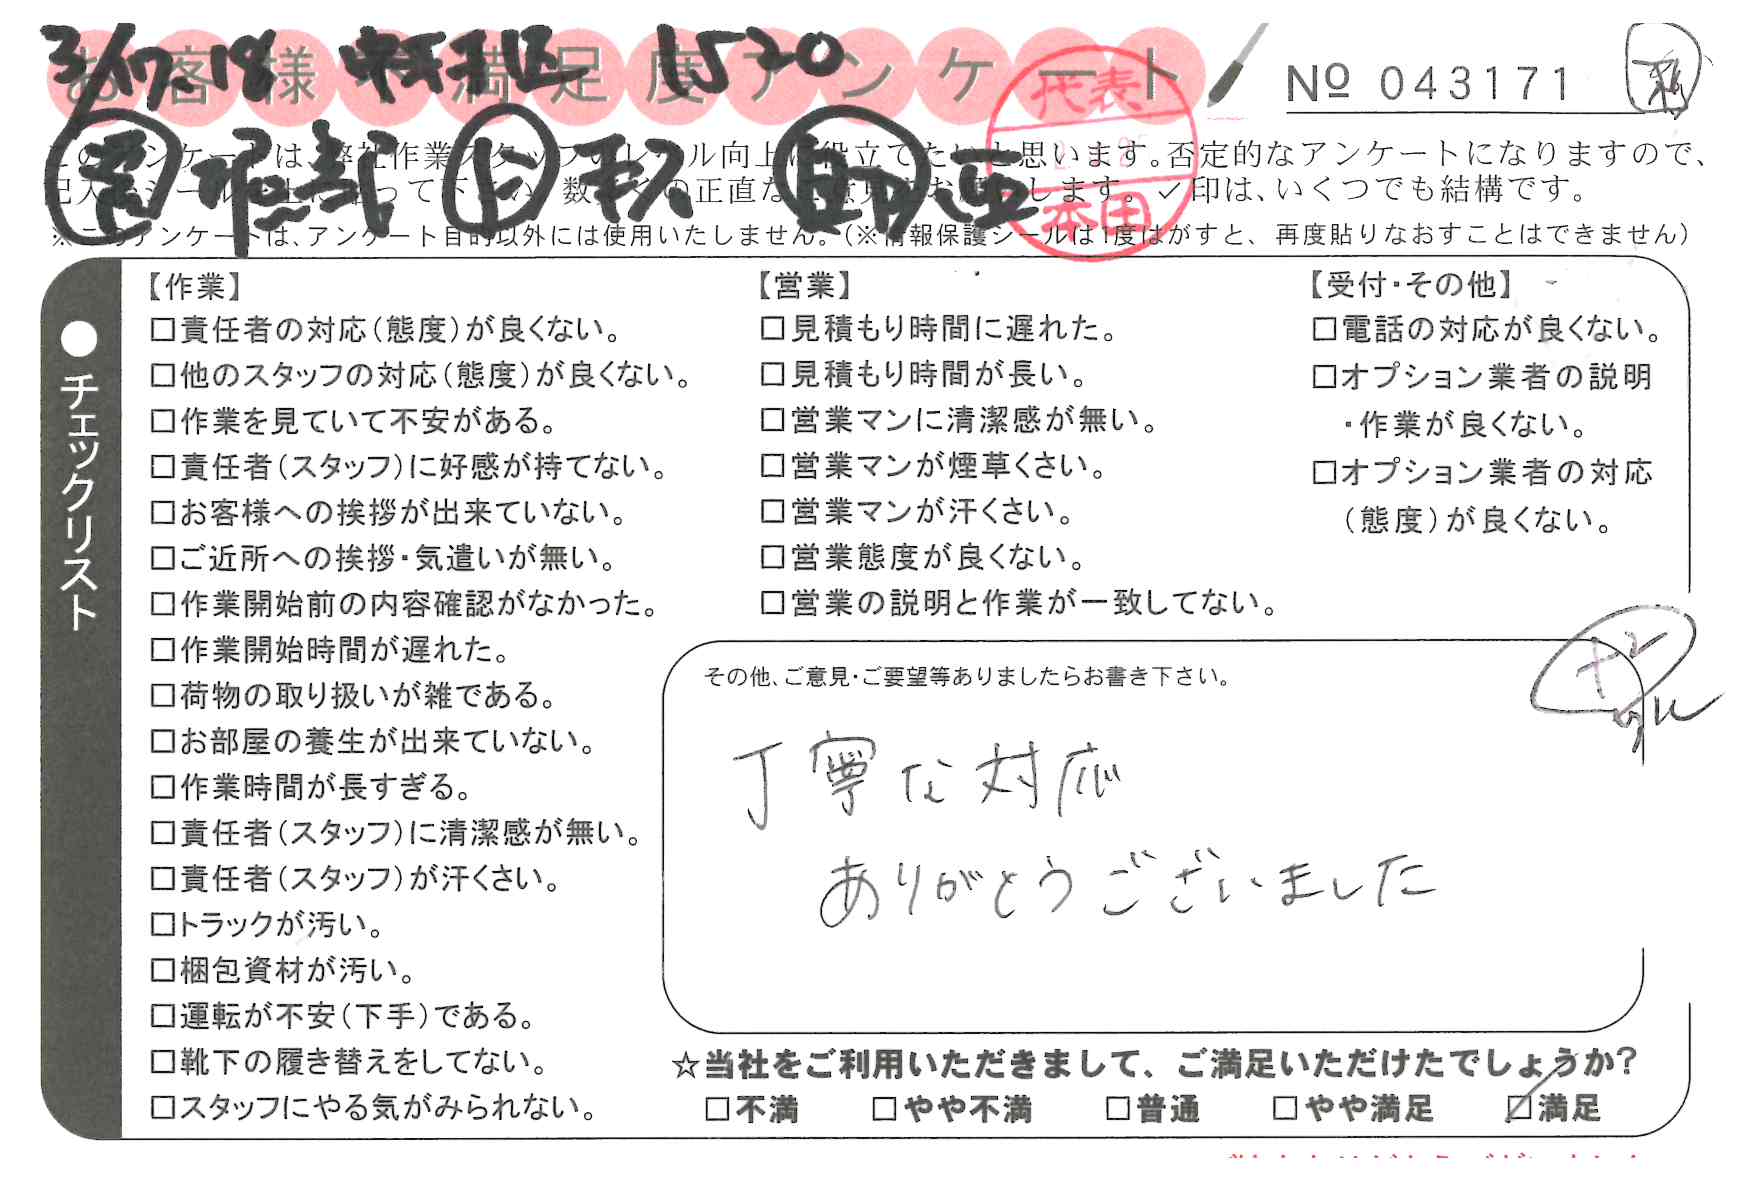 3/17.18 1520
お客様 満足度アンケート
代表
本田
№ 043171
このアンケートは、弊社作業スタッフのレベル向上に役立てたいと思います。否定的なアンケートになりますので、
✓印は、いくつでも結構です。
※このアンケートは、アンケート目的以外には使用いたしません。（※情報保護シールは1度はがすと、再度貼りなおすことはできません）
●チェックリスト
【作業】
□責任者の対応（態度）が良くない。
□他のスタッフの対応（態度）が良くない。
□作業を見ていて不安がある。
□責任者（スタッフ）に好感が持てない。
□お客様への挨拶が出来ていない。
□ご近所への挨拶・気遣いが無い。
□作業開始前の内容確認がなかった。
□作業開始時間が遅れた。
□荷物の取り扱いが雑である。
□お部屋の養生が出来ていない。
□作業時間が長すぎる。
□責任者（スタッフ）に清潔感が無い。
□責任者（スタッフ）が汗くさい。
□トラックが汚い。
□梱包資材が汚い。
□運転が不安（下手）である。
□靴下の履き替えをしてない。
□スタッフにやる気がみられない。
【営業】
□見積もり時間に遅れた。
□見積もり時間が長い。
□営業マンに清潔感が無い。
□営業マンが煙草くさい。
□営業マンが汗くさい。
□営業態度が良くない。
□営業の説明と作業が一致してない。
【受付・その他】
□電話の対応が良くない。
□オプション業者の説明
・作業が良くない。
□オプション業者の対応
（態度）が良くない。
その他、ご意見・ご要望等ありましたらお書き下さい。
丁寧な対応
ありがとうございました
☆当社をご利用いただきまして、ご満足いただけたでしょうか?
□不満 □やや不満 □普通 □やや満足 ☑満足